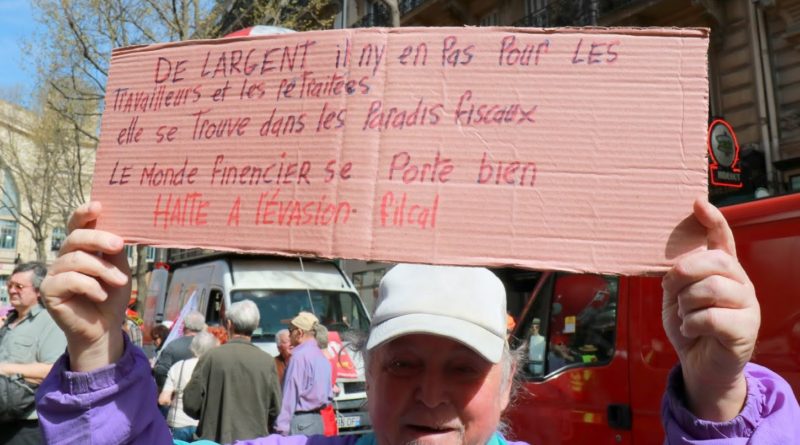 DE LARGENT il ny en Pas Pour LES
TrAvailleurs et les retraitées
elle se Trouve dans les Paradis fiscaux
LE Monde financier se Porte bien
HALTE A l'EVASION- filcal